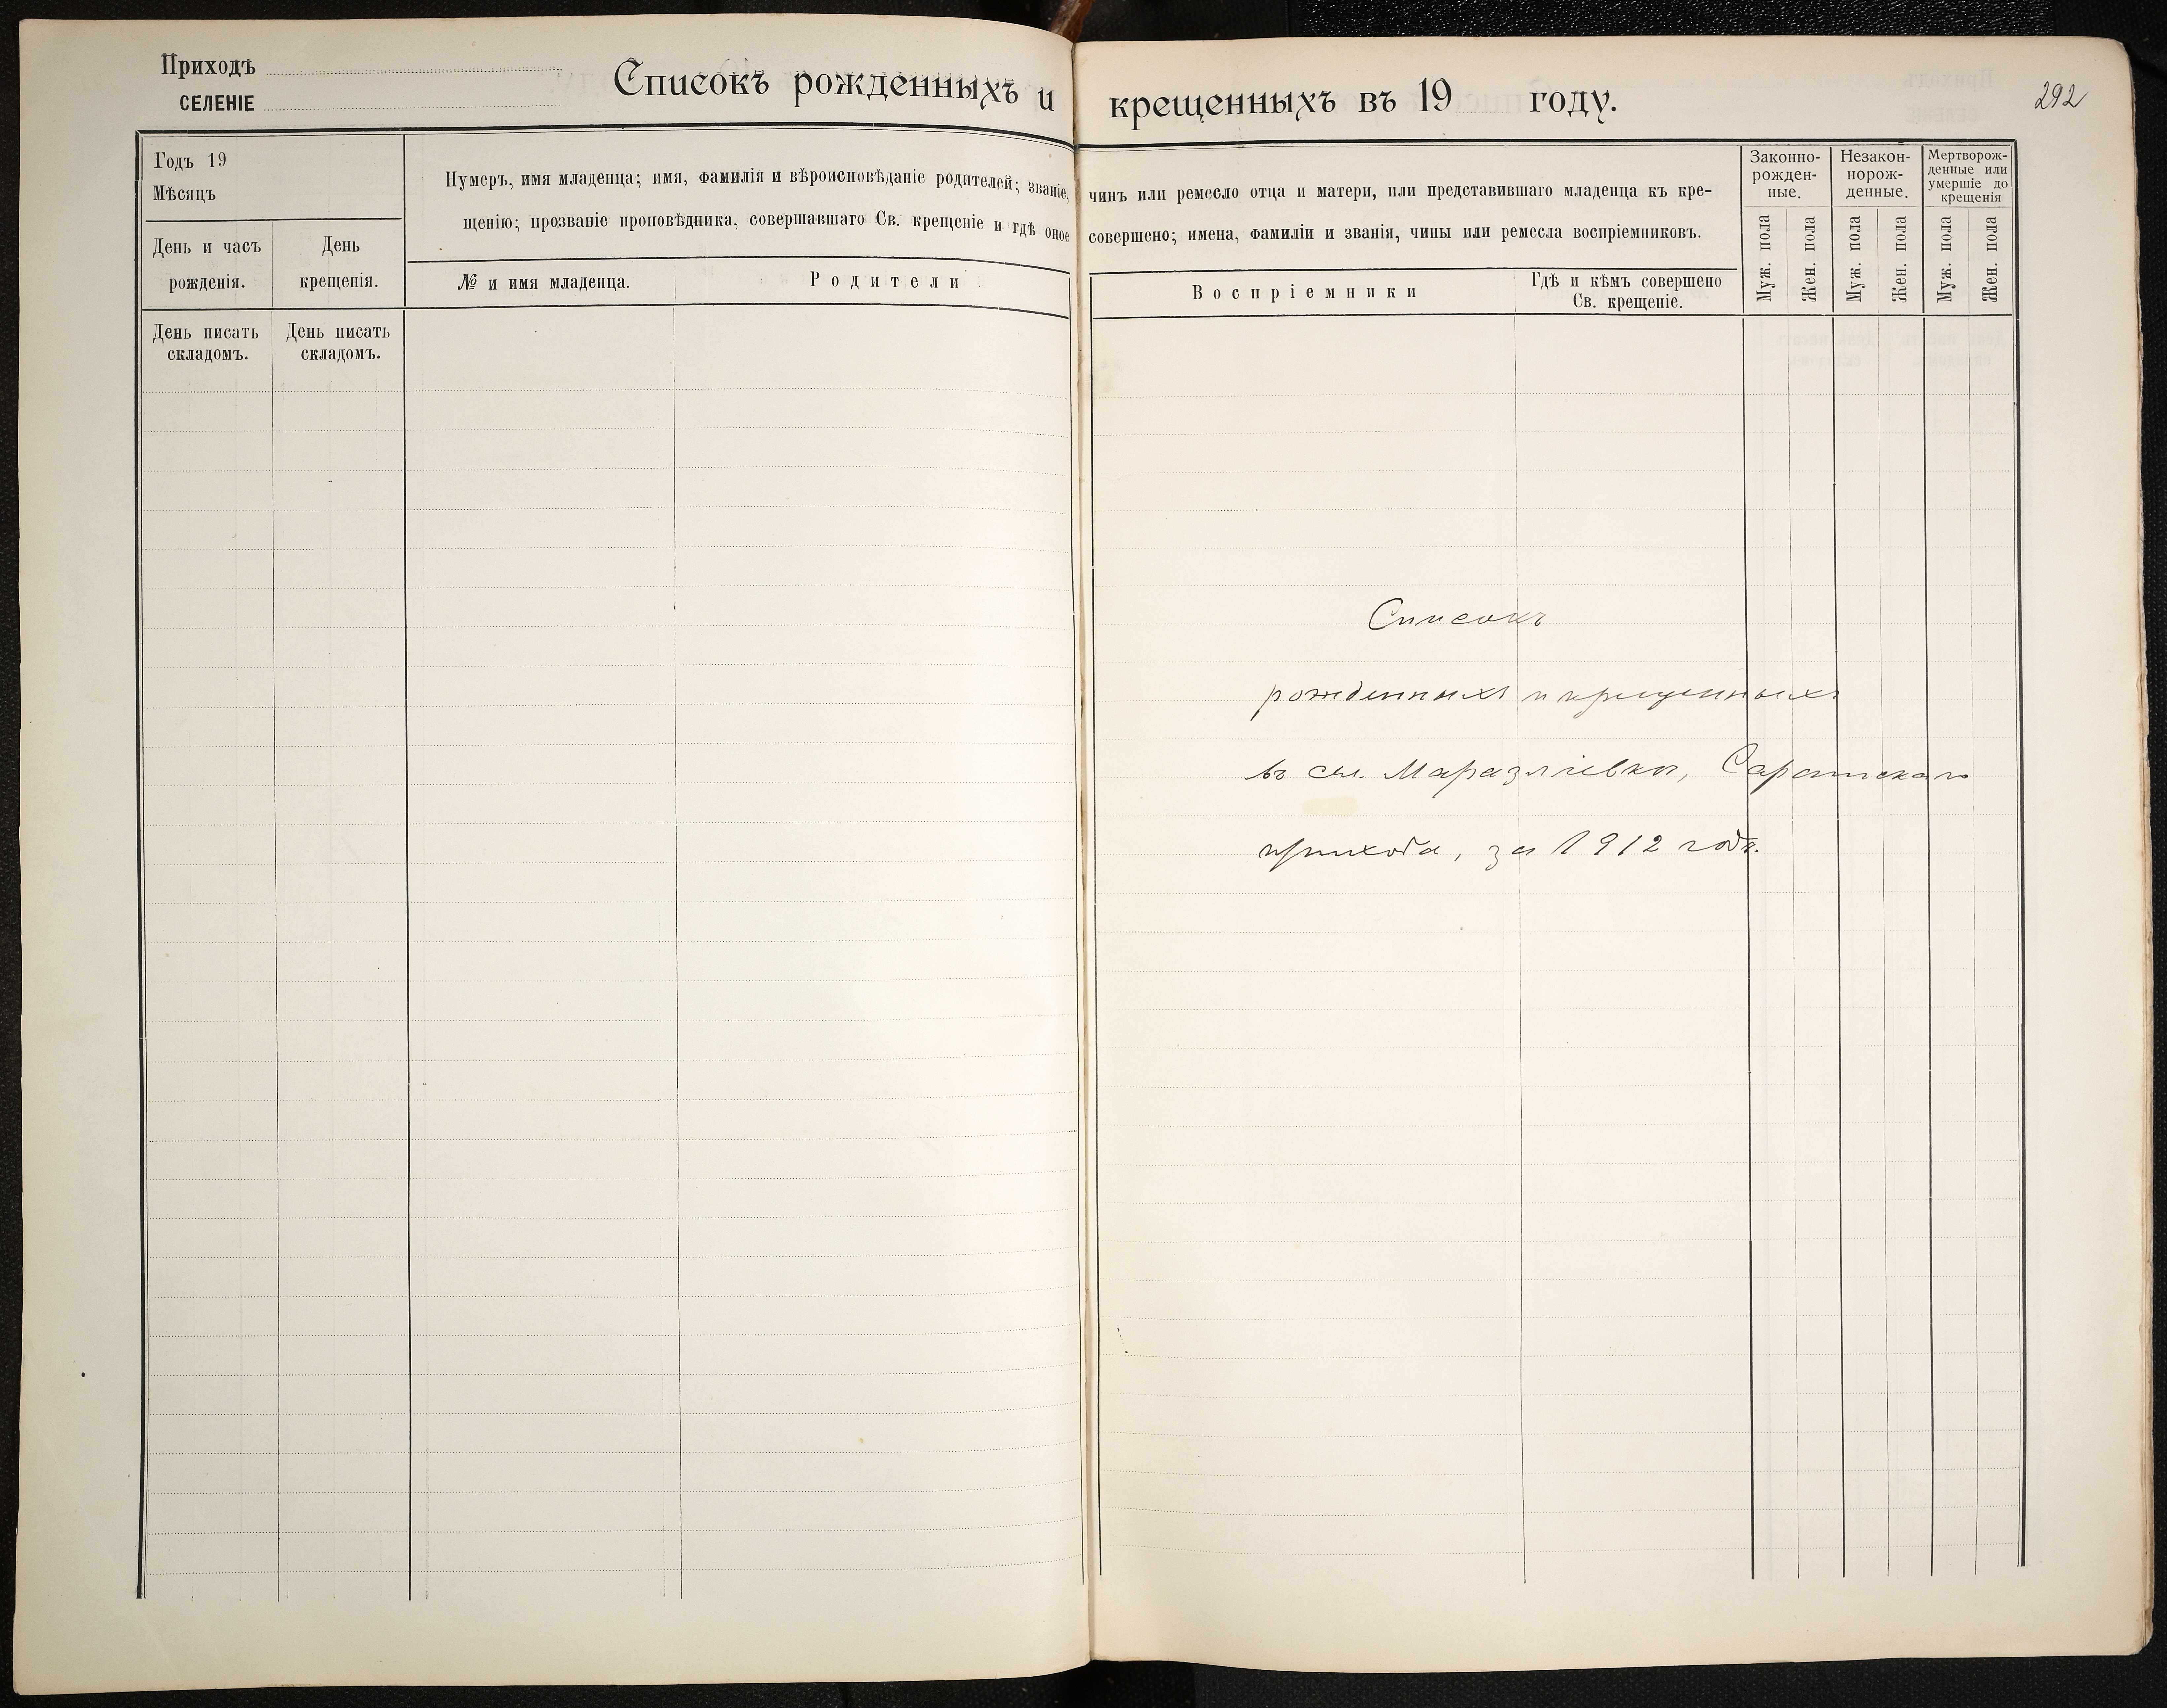 Приходъ
СЕЛЕНІЕ
Списокъ рожденныхъ и крещенныхъ въ 19 году.
292
Годъ 19
Мѣсяцъ
День и часъ
рожденія.
День
крещенія.
Нумеръ, имя младенца; имя, фамилія и вѣроисповѣданіе родителей; званіе, чинъ или ремесло отца и матери, или представившаго младенца къ кре-
щенію; прозваніе проповѣдника, совершавшаго Св. крещеніе и гдѣ оное совершено; имена, фамиліи и званія, чины или ремесла воспріемниковъ.
№ и имя младенца.
Родители
Воспріемники
Гдѣ и кѣмъ совершено
Св. крещеніе.
Законно-
рожден-
ные.
Незакон-
норож-
денные.
Мертворож-
денные или
умершіе до
крещенія
Муж. пола
Жен. пола
Муж. пола
Жен. пола
Муж. пола
Жен. пола
День писать
складомъ.
День писать
складомъ.
Списокъ
рожденныхъ и крещенныхъ
въ сел. Маразліевка, Саратскаго
прихода, за 1912 годъ.